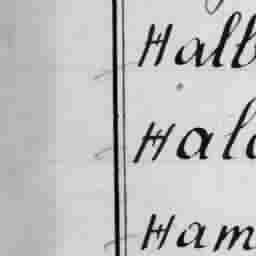 Halb
Hald
Ham